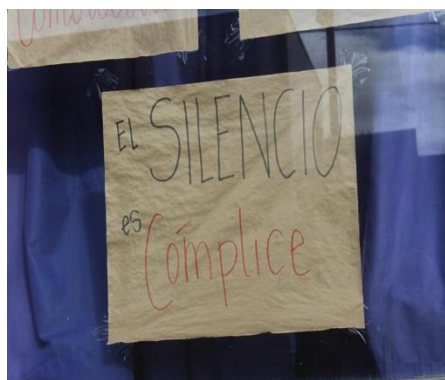 EL SILENCIO
es Cómplice